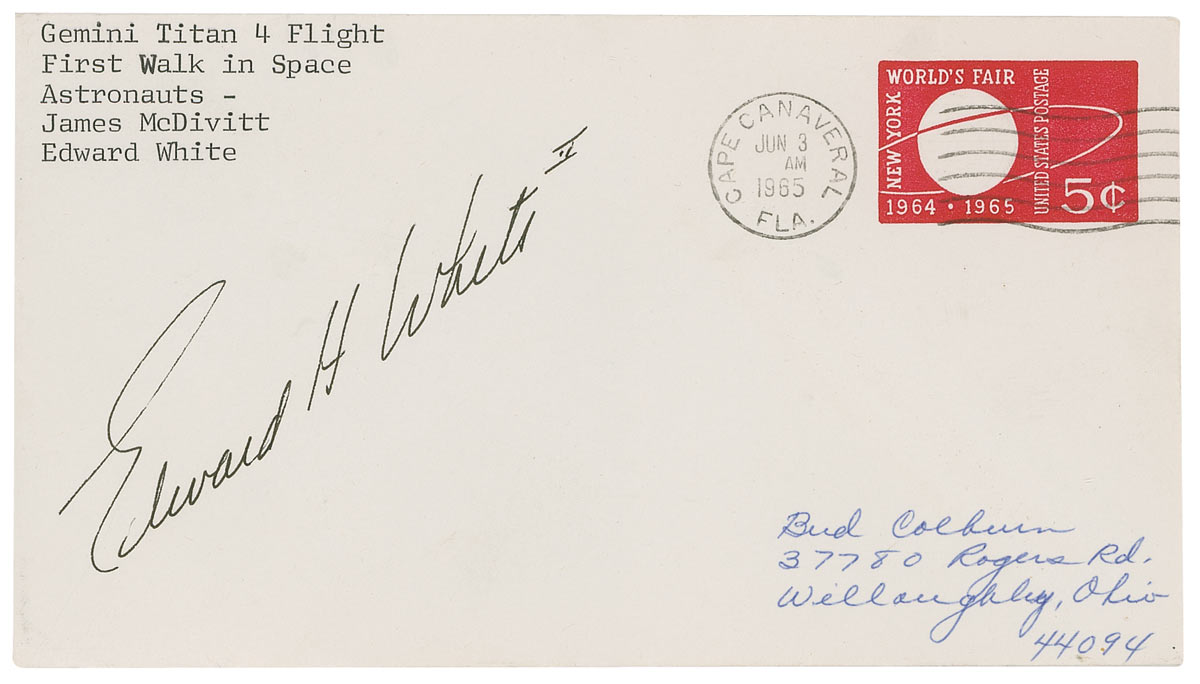 Gemini Titan 4 Flight
First Walk in Space
Astronauts -
James McDivitt
Edward White
CAPE CANAVERAL
JUN 3
AM
1965
FLA.
WORLD'S FAIR
NEW YORK
UNITED STATES POSTAGE
1964 • 1965
5¢
Edward H White II
Bud Colburn
37780 Rogers Rd.
Willoughby, Ohio
44094